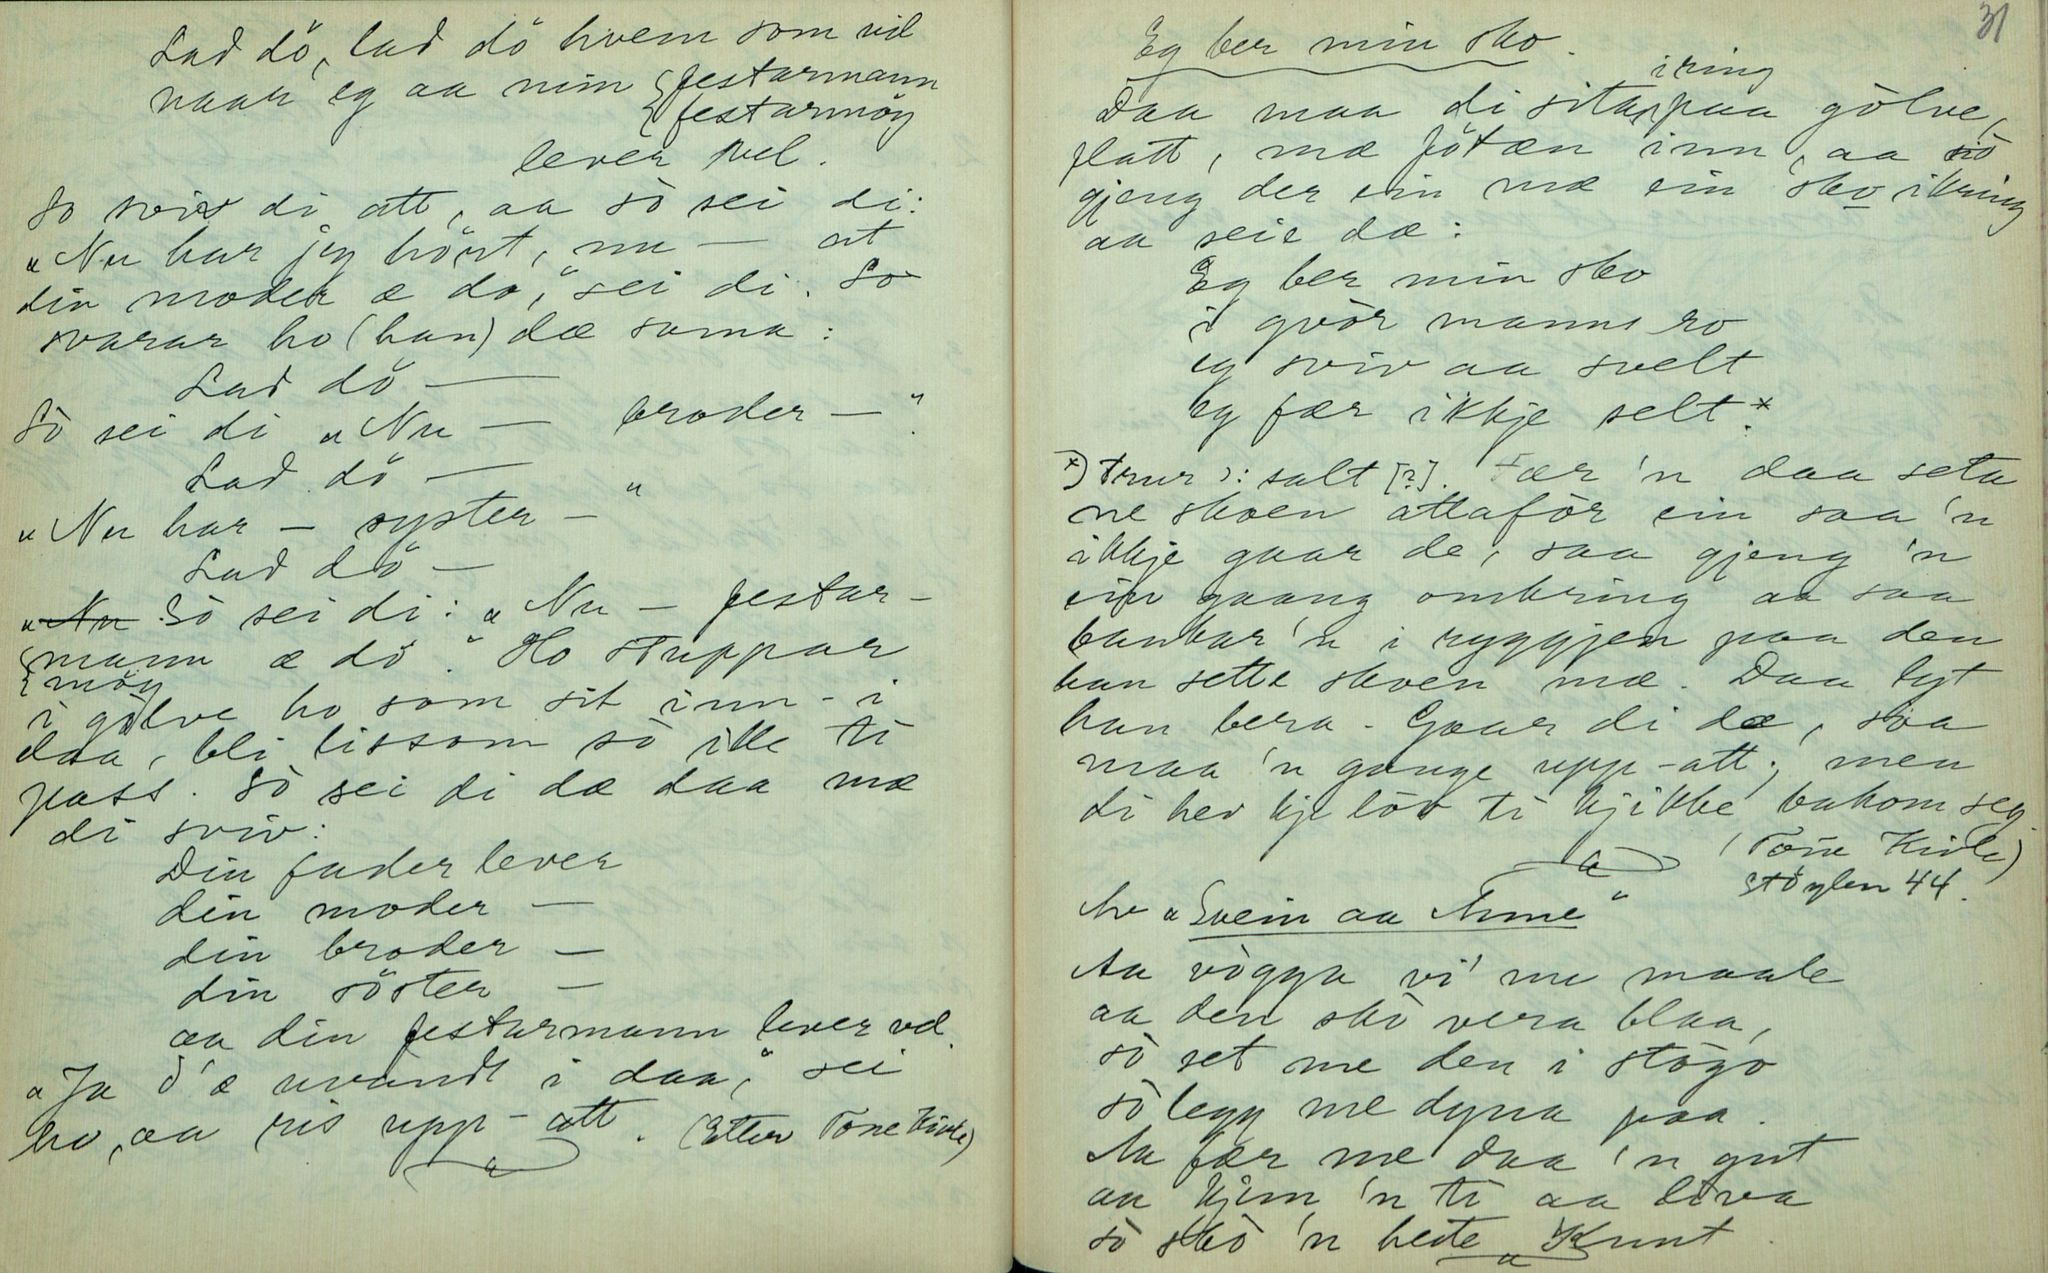 Lad dö, lad dö hvem som vil
naar eg aa min { festarmann
{ festarmöy
lever vel.
So sviv di att, aa sò sei di:
„Nu har jeg hört, nu — at
din moder æ dö," sei di. So
svarar ho (han) dæ sama:
Lad dö —
Sò sei di „Nu — broder —".
Lad dö —
„Nu har — syster — "
Lad dö —
„Nu Sò sei di: „Nu — festar-
{ mann æ dö". Ho stuppar
{ möy
i gölve ho som sit inn-i
daa, bli lissom sò ille ti
pass. Sò sei di dæ daa mæ
di sviv:
Din fader lever
din moder —
din broder —
din söster —
aa din festarmann lever vel.
„Ja d'æ uvandt i daa," sei
ho, aa ris upp-att. (Etter Tone Kivle)
31
Eg ber min sko.
i ring
Daa maa di sita paa gölve,
flatt, mæ fötæn inn, aa sò
gjeng der ein mæ ein sko ikring
aa seie dæ:
Eg ber min sko
i qvòr manns ro
eg sviv aa svelt
eg fær ikkje selt.*
*) trur ɔ: salt [?]. Fær 'n daa seta
ne skoen attafòr ein saa 'n
ikkje gaar de, saa gjeng 'n
ein gaang ombring aa saa
bankar 'n i ryggjen paa den
han sette skoen mæ. Daa lyt
han bera. Gaar di dæ, saa
maa 'n gange upp-att; men
di hev kje löv ti kjikke bakom seg.
(Tone Kivle)
Stöylen 44.
Av „Svein aa Anne"
Aa vògga vi' me maale
aa den skò vera blaa,
sò set me den i stògo
sò legg me dyna paa.
Aa fær me daa 'n gut
aa kjem 'n ti aa liva
sò skò 'n heite Knut.